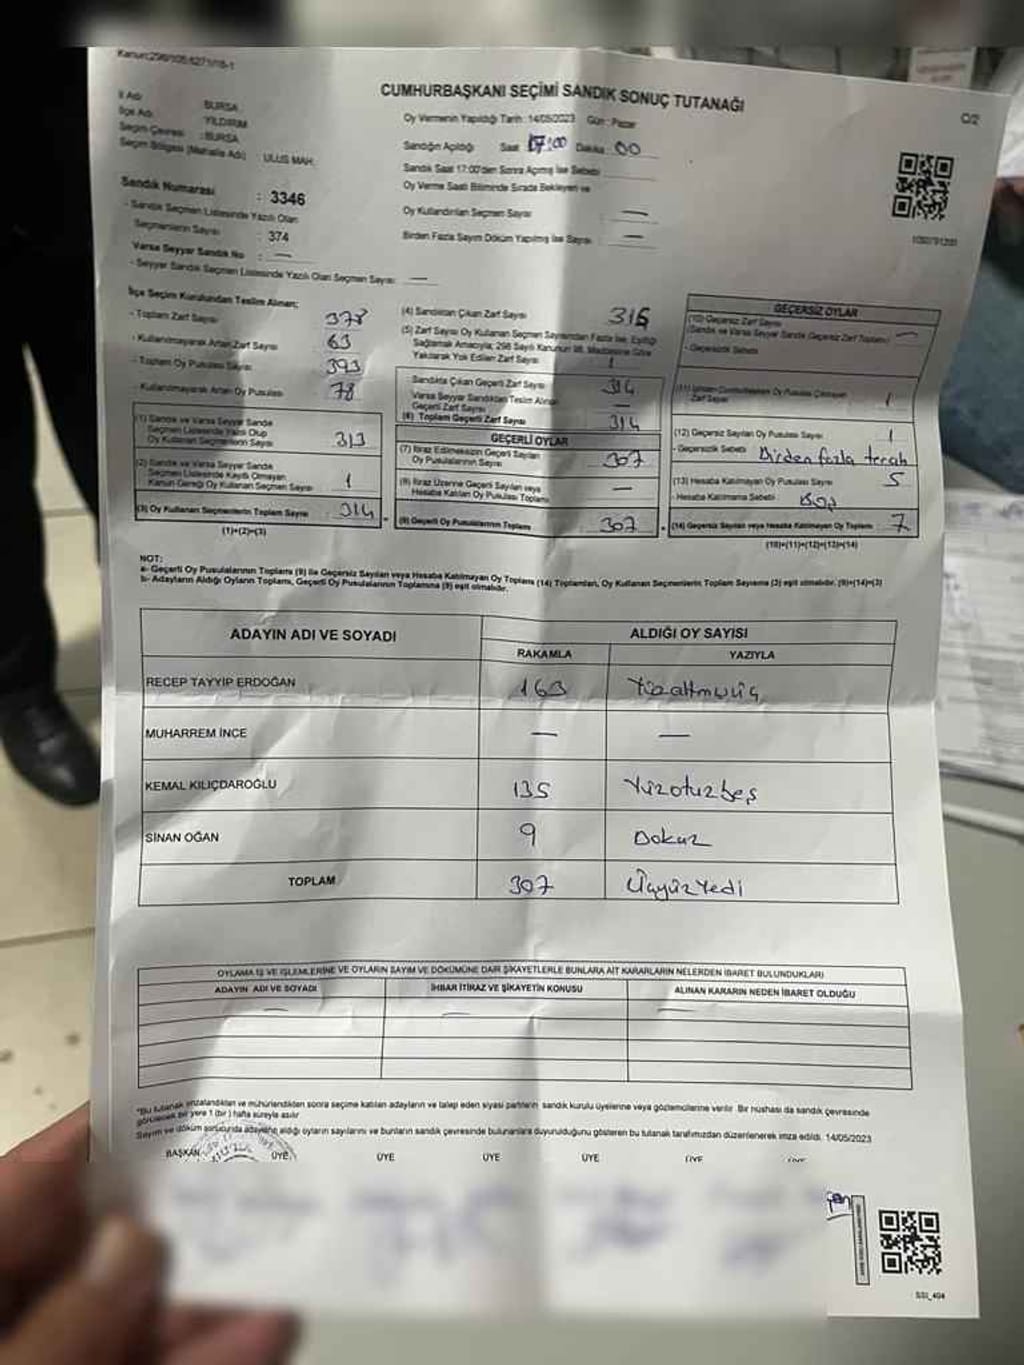 Kanun:298/105;6271/18-1
CUMHURBAŞKANI SEÇİMİ SANDIK SONUÇ TUTANAĞI
C/2
İl Adı : BURSA
İlçe Adı : YILDIRIM
Seçim Çevresi : BURSA
Seçim Bölgesi (Mahalle Adı) : ULUS MAH.
Oy Vermenin Yapıldığı Tarih : 14/05/2023 Gün : Pazar
Sandığın Açıldığı Saat 17:00 Dakika 00
Sandık Saat 17:00'den Sonra Açılmış İse Sebebi
Oy Verme Saati Bitiminde Sırada Bekleyen ve
Oy Kullandırılan Seçmen Sayısı : —
Birden Fazla Sayım Döküm Yapılmış İse Sayısı : —
Sandık Numarası : 3346
- Sandık Seçmen Listesinde Yazılı Olan
Seçmenlerin Sayısı : 374
Varsa Seyyar Sandık No : —
- Seyyar Sandık Seçmen Listesinde Yazılı Olan Seçmen Sayısı : —
İlçe Seçim Kurulundan Teslim Alınan;
- Toplam Zarf Sayısı 378
- Kullanılmayarak Artan Zarf Sayısı 63
- Toplam Oy Pusulası Sayısı 393
- Kullanılmayarak Artan Oy Pusulası 78
(1) Sandık ve Varsa Seyyar Sandık
Seçmen Listesinde Yazılı Olup
Oy Kullanan Seçmenlerin Sayısı 313
(2) Sandık ve Varsa Seyyar Sandık
Seçmen Listesinde Kayıtlı Olmayan
Kanun Gereği Oy Kullanan Seçmen Sayısı 1
(3) Oy Kullanan Seçmenlerin Toplam Sayısı 314
(1)+(2)=(3)
(4) Sandıktan Çıkan Zarf Sayısı 315
(5) Zarf Sayısı Oy Kullanan Seçmen Sayısından Fazla İse, Eşitliği
Sağlamak Amacıyla; 298 Sayılı Kanunun 98. Maddesine Göre
Yakılarak Yok Edilen Zarf Sayısı 1
Sandıkta Çıkan Geçerli Zarf Sayısı 314
Varsa Seyyar Sandıktan Teslim Alınan
Geçerli Zarf Sayısı —
(6) Toplam Geçerli Zarf Sayısı 314
GEÇERLİ OYLAR
(7) İtiraz Edilmeksizin Geçerli Sayılan
Oy Pusulalarının Sayısı 307
(8) İtiraz Üzerine Geçerli Sayılan veya
Hesaba Katılan Oy Pusulası Toplamı —
(9) Geçerli Oy Pusulalarının Toplamı 307
GEÇERSİZ OYLAR
(10) Geçersiz Zarf Sayısı
(Sandık ve Varsa Seyyar Sandık Geçersiz Zarf Toplamı) —
- Geçersizlik Sebebi
Zarf Sayısı 1
(12) Geçersiz Sayılan Oy Pusulası Sayısı 1
- Geçersizlik Sebebi Birden fazla tercih
(13) Hesaba Katılmayan Oy Pusulası Sayısı 5
- Hesaba Katılmama Sebebi Boş
(14) Geçersiz Sayılan veya Hesaba Katılmayan Oy Toplamı 7
(10)+(11)+(12)+(13)=(14)
NOT:
a- Geçerli Oy Pusulalarının Toplamı (9) ile Geçersiz Sayılan veya Hesaba Katılmayan Oy Toplamı (14) Toplamları, Oy Kullanan Seçmenlerin Toplam Sayısına (3) eşit olmalıdır. (9)+(14)=(3)
b- Adayların Aldığı Oyların Toplamı, Geçerli Oy Pusulalarının Toplamına (9) eşit olmalıdır.
ADAYIN ADI VE SOYADI ALDIĞI OY SAYISI
RAKAMLA YAZIYLA
RECEP TAYYİP ERDOĞAN 163 Yüzaltmışüç
MUHARREM İNCE — —
KEMAL KILIÇDAROĞLU 135 Yüzotuzbeş
SİNAN OĞAN 9 Dokuz
TOPLAM 307 ÜçyüzYedi
OYLAMA İŞ VE İŞLEMLERİNE VE OYLARIN SAYIM VE DÖKÜMÜNE DAİR ŞİKAYETLERLE BUNLARA AİT KARARLARIN NELERDEN İBARET BULUNDUKLARI
ADAYIN ADI VE SOYADI İHBAR İTİRAZ VE ŞİKAYETİN KONUSU ALINAN KARARIN NEDEN İBARET OLDUĞU
— — —
*Bu tutanak imzalandıktan ve mühürlendikten sonra seçime katılan adayların ve talep eden siyasi partilerin sandık kurulu üyelerine veya gözlemcilerine verilir. Bir nüshası da sandık çevresinde
görülecek bir yere 1 (bir) hafta süreyle asılır
Sayım ve döküm sonucunda adayların aldığı oyların sayılarını ve bunların sandık çevresinde bulunanlara duyurulduğunu gösteren bu tutanak tarafımızdan düzenlenerek imza edildi. 14/05/2023
BAŞKAN ÜYE ÜYE ÜYE ÜYE ÜYE ÜYE
SSI_404